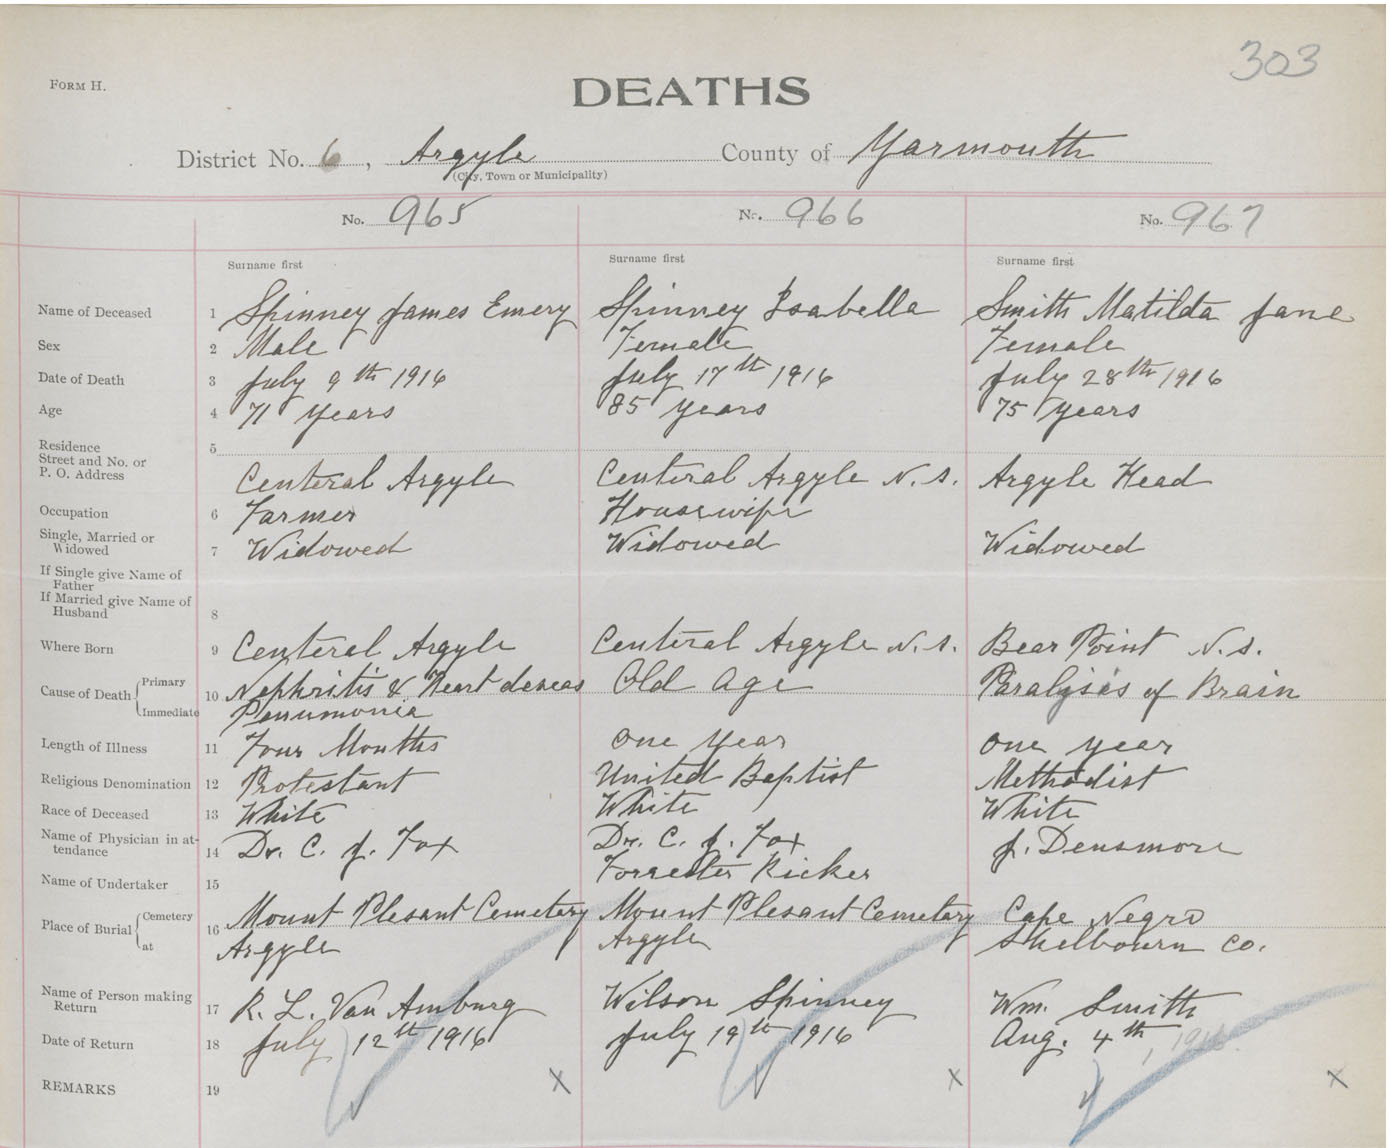 303
FORM H.
DEATHS
District No. 6, Argyle County of Yarmouth
(City, Town or Municipality)
No. 965 No. 966 No. 967
Surname first Surname first Surname first
Name of Deceased 1 Spinney James Emery Spinney Isabella Smith Matilda Jane
Sex 2 Male Female Female
Date of Death 3 July 9th 1916 July 17th 1916 July 28th 1916
Age 4 71 Years 85 Years 75 Years
Residence 5
Street and No. or
P. O. Address Centeral Argyle Centeral Argyle N.S. Argyle Head
Occupation 6 Farmer Housewife
Single, Married or
Widowed 7 Widowed Widowed Widowed
If Single give Name of
Father
If Married give Name of
Husband 8
Where Born 9 Centeral Argyle Centeral Argyle N.S. Bear Point N.S.
Cause of Death { Primary 10 Nephritis & Heart deseas Old Age Paralysis of Brain
Immediate Penumonia
Length of Illness 11 Four Months One Year One year
Religious Denomination 12 Protestant United Baptist Methodist
Race of Deceased 13 White White White
Name of Physician in at-
tendance 14 Dr. C. J. Fox Dr. C. J. Fox J. Densmore
Name of Undertaker 15 Forrester Ricker
Place of Burial { Cemetery 16 Mount Plesant Cemetery Mount Plesant Cemetary Cape Negro
at Argyle Argyle Shelbourn Co.
Name of Person making
Return 17 R. L. Van Amburg Wilson Spinney Wm. Smith
Date of Return 18 July 12th 1916 July 19th 1916 Aug. 4th, 1916.
REMARKS 19 x x x